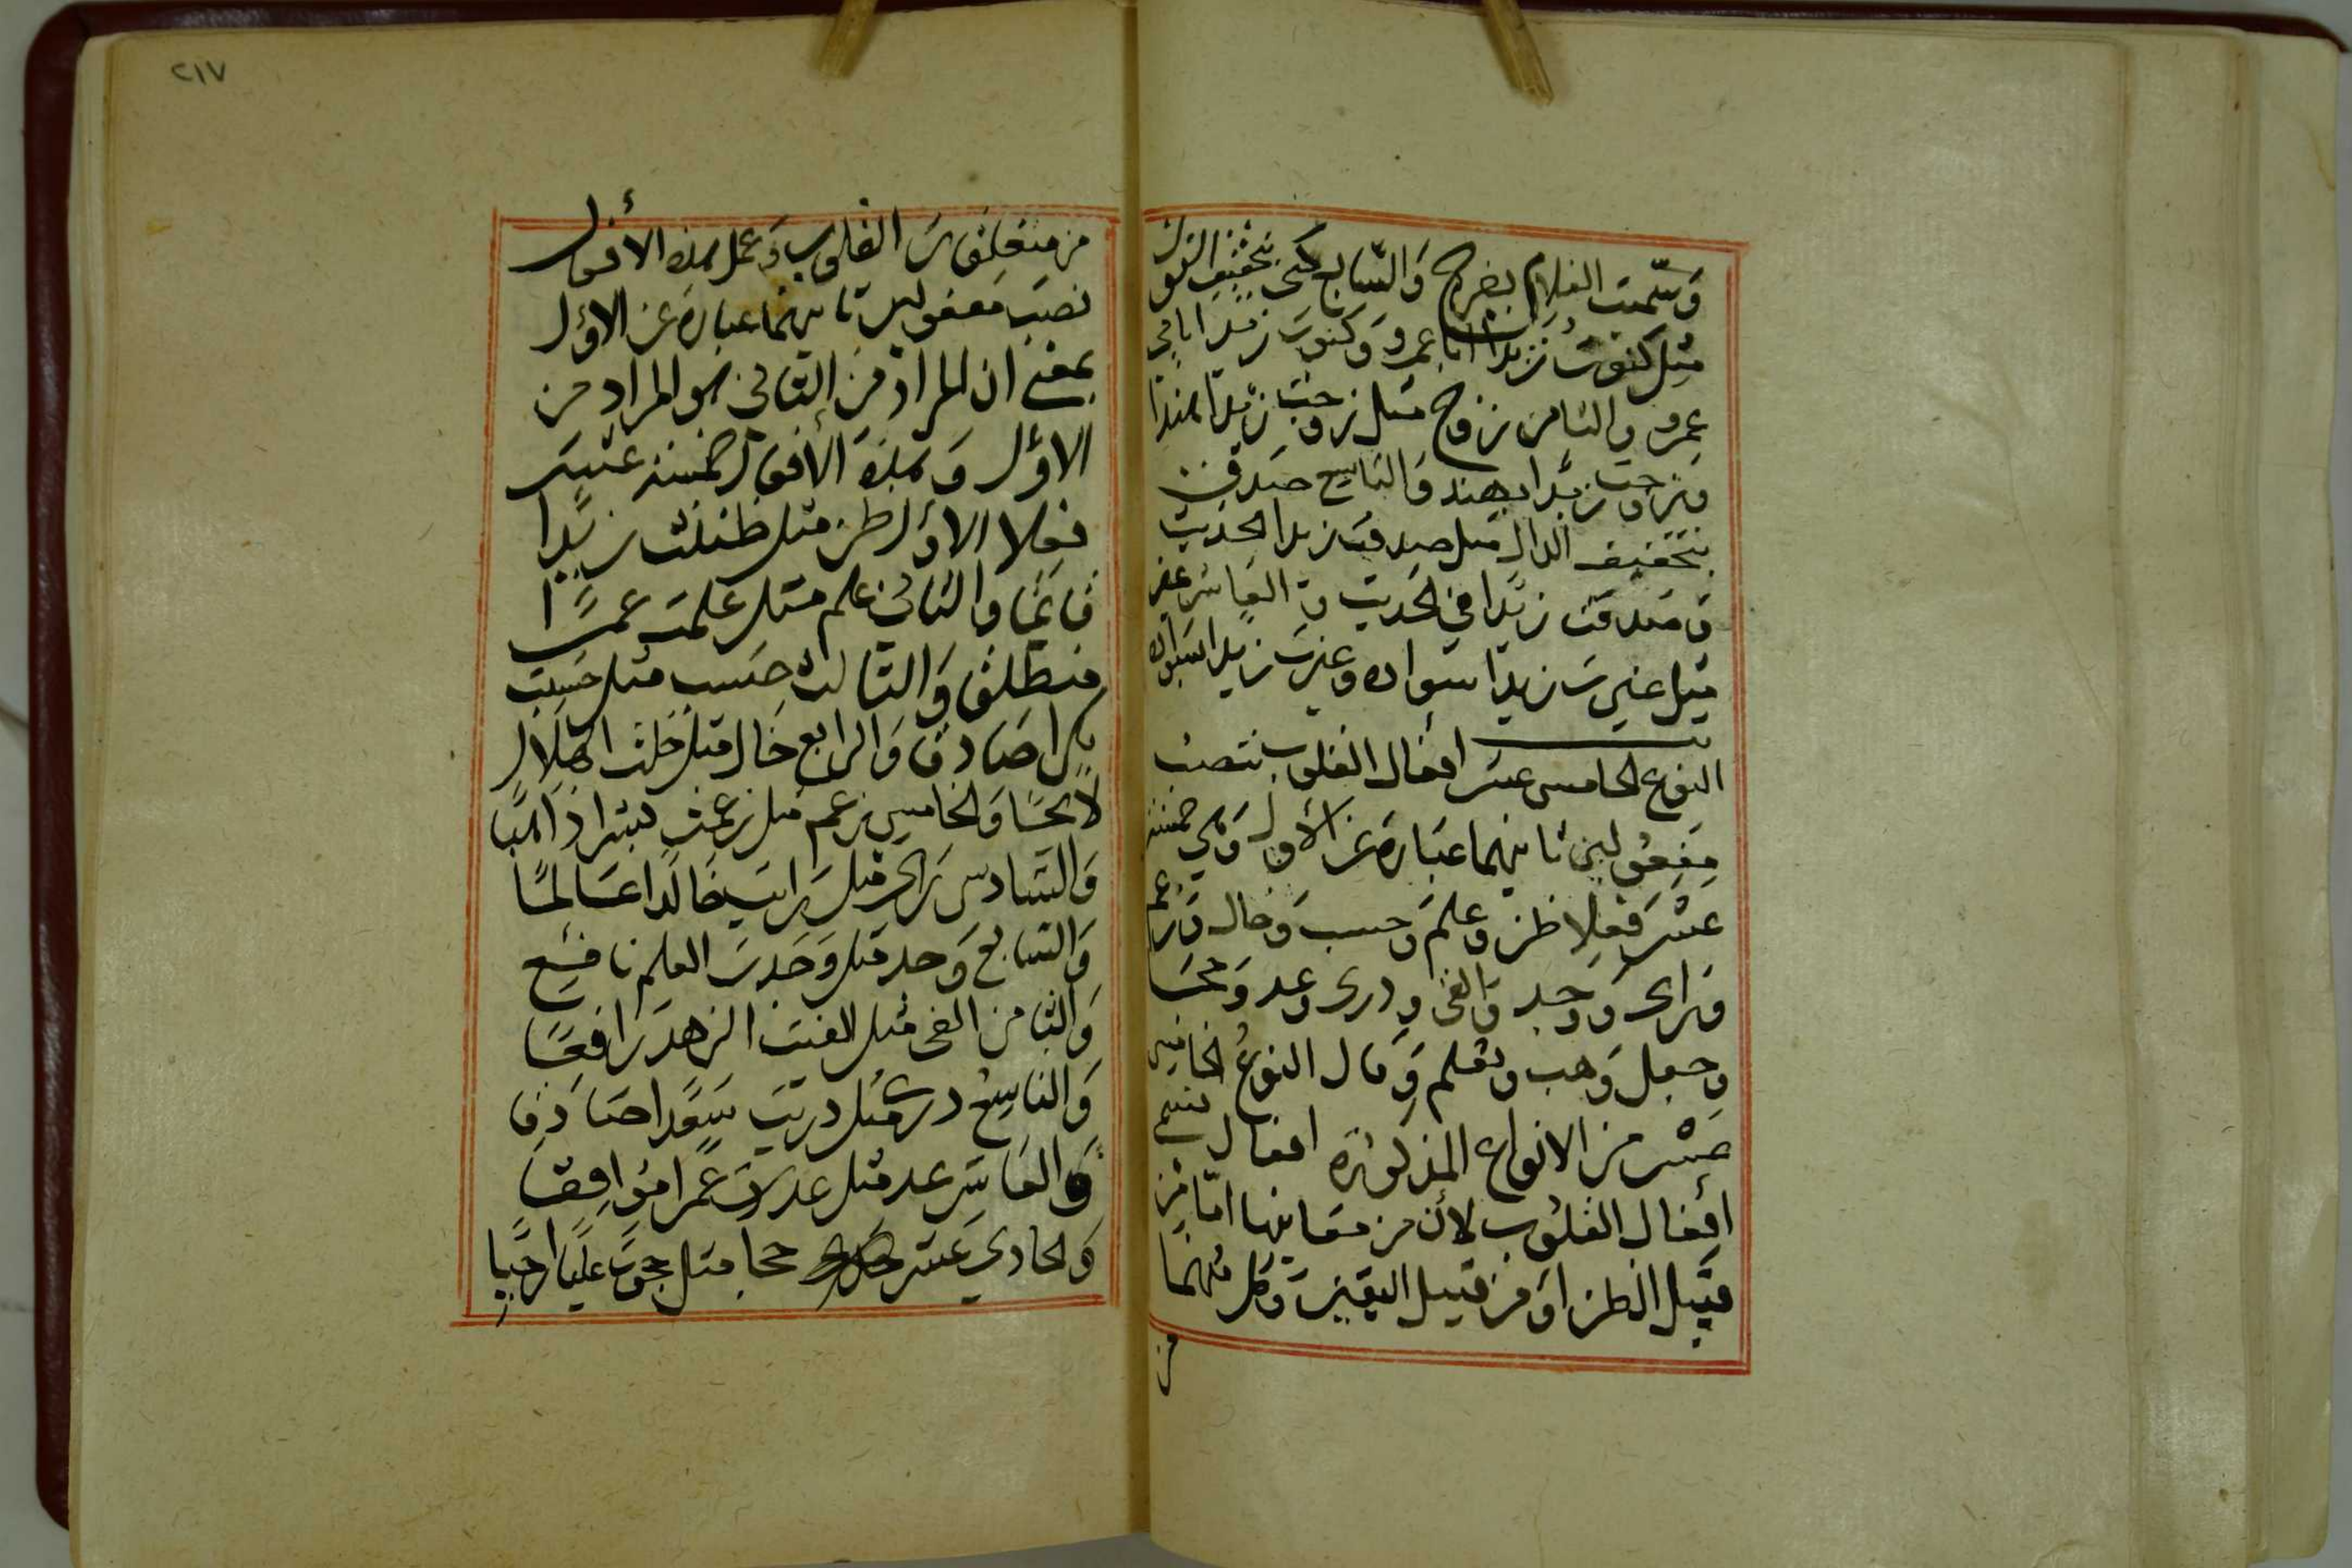 وسميت الغلام بفرج والسابع كنى بتخفيف النون
مثل كنوت زيدا ابا عمرو وكنوت زيدا بابي
عمرو والثامن زوج مثل زوجت زيدا هندا
وزوجت زيدا بهند والتاسع صدق
بتخفيف الدال مثل صدقت زيدا الحديث
وصدقت زيدا في الحديث والعاشر عير
مثل عيرت زيدا سواده وعيرت زيدا بسواده
النوع الخامس عشر افعال القلوب تنصب
مفعولين ثانيهما عبارة عن الأول وهي خمسة
عشر فعلا ظن وعلم وحسب وخال وزعم
وراى ووجد والفى ودرى وعد وحجا
وجعل وهب وتعلم وقال النوع الخامس
عشر من الانواع المذكورة افعال تسمى
افعال القلوب لأن من معانيها اما من
قبيل الظن او من قبيل اليقين وكل منهما
من
٢١٧
من متعلقات القلوب وعمل هذه الأفعال
نصب مفعولين ثانيهما عبارة عن الاول
بمعنى ان المراد من الثاني هو المراد من
الاول وهذه الأفعال خمسة عشر
فعلا الاول ظن مثل ظننت زيدا
قائما والثاني علم مثل علمت عمرا
منطلقا والثالث حسب مثل حسبت
بكرا صادقا والرابع خال مثل خلت الهلال
لائحا والخامس زعم مثل زعمت بشرا ذاهبا
والسادس راى مثل رايت خالدا عالما
والسابع وجد مثل وجدت العلم نافع
والثامن الفى مثل الفيت الزهد رافعا
والتاسع درى مثل دريت سعدا صادقا
والعاشر عد مثل عددت عمرا موافقا
والحادي عشر حجا مثل حجوت عليا